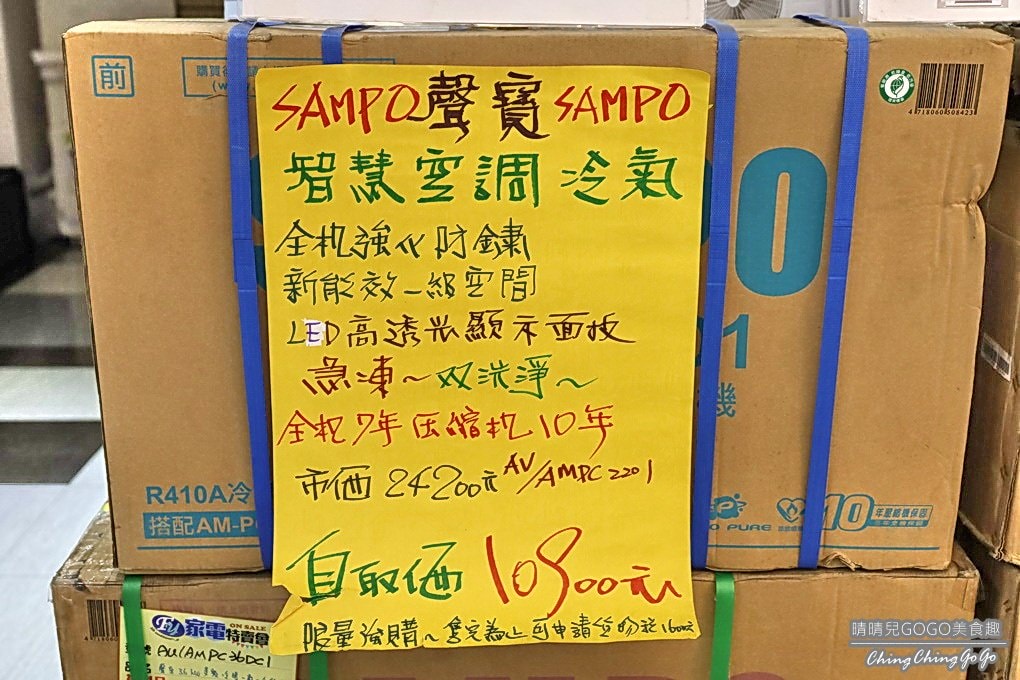 前
購買
SAMPO聲寶SAMPO
智慧空調 冷氣
全机強化防鏽
新能效一級空間
LED高透光顯示面技
急凍~双洗淨~
全机7年压縮机10年
市価24200元AU/AMPC2201
自取価10900元
限量強購~售完為止可申請貨物稅1600元
4718060508423
O
1
機
R410A冷
搭配AM-P
O PURE
10年壓縮機保固
EU家電特賣會
ON SALE
AU(AMPC36DC1
4718060
晴晴兒GOGO美食趣
ChingChingGoGo